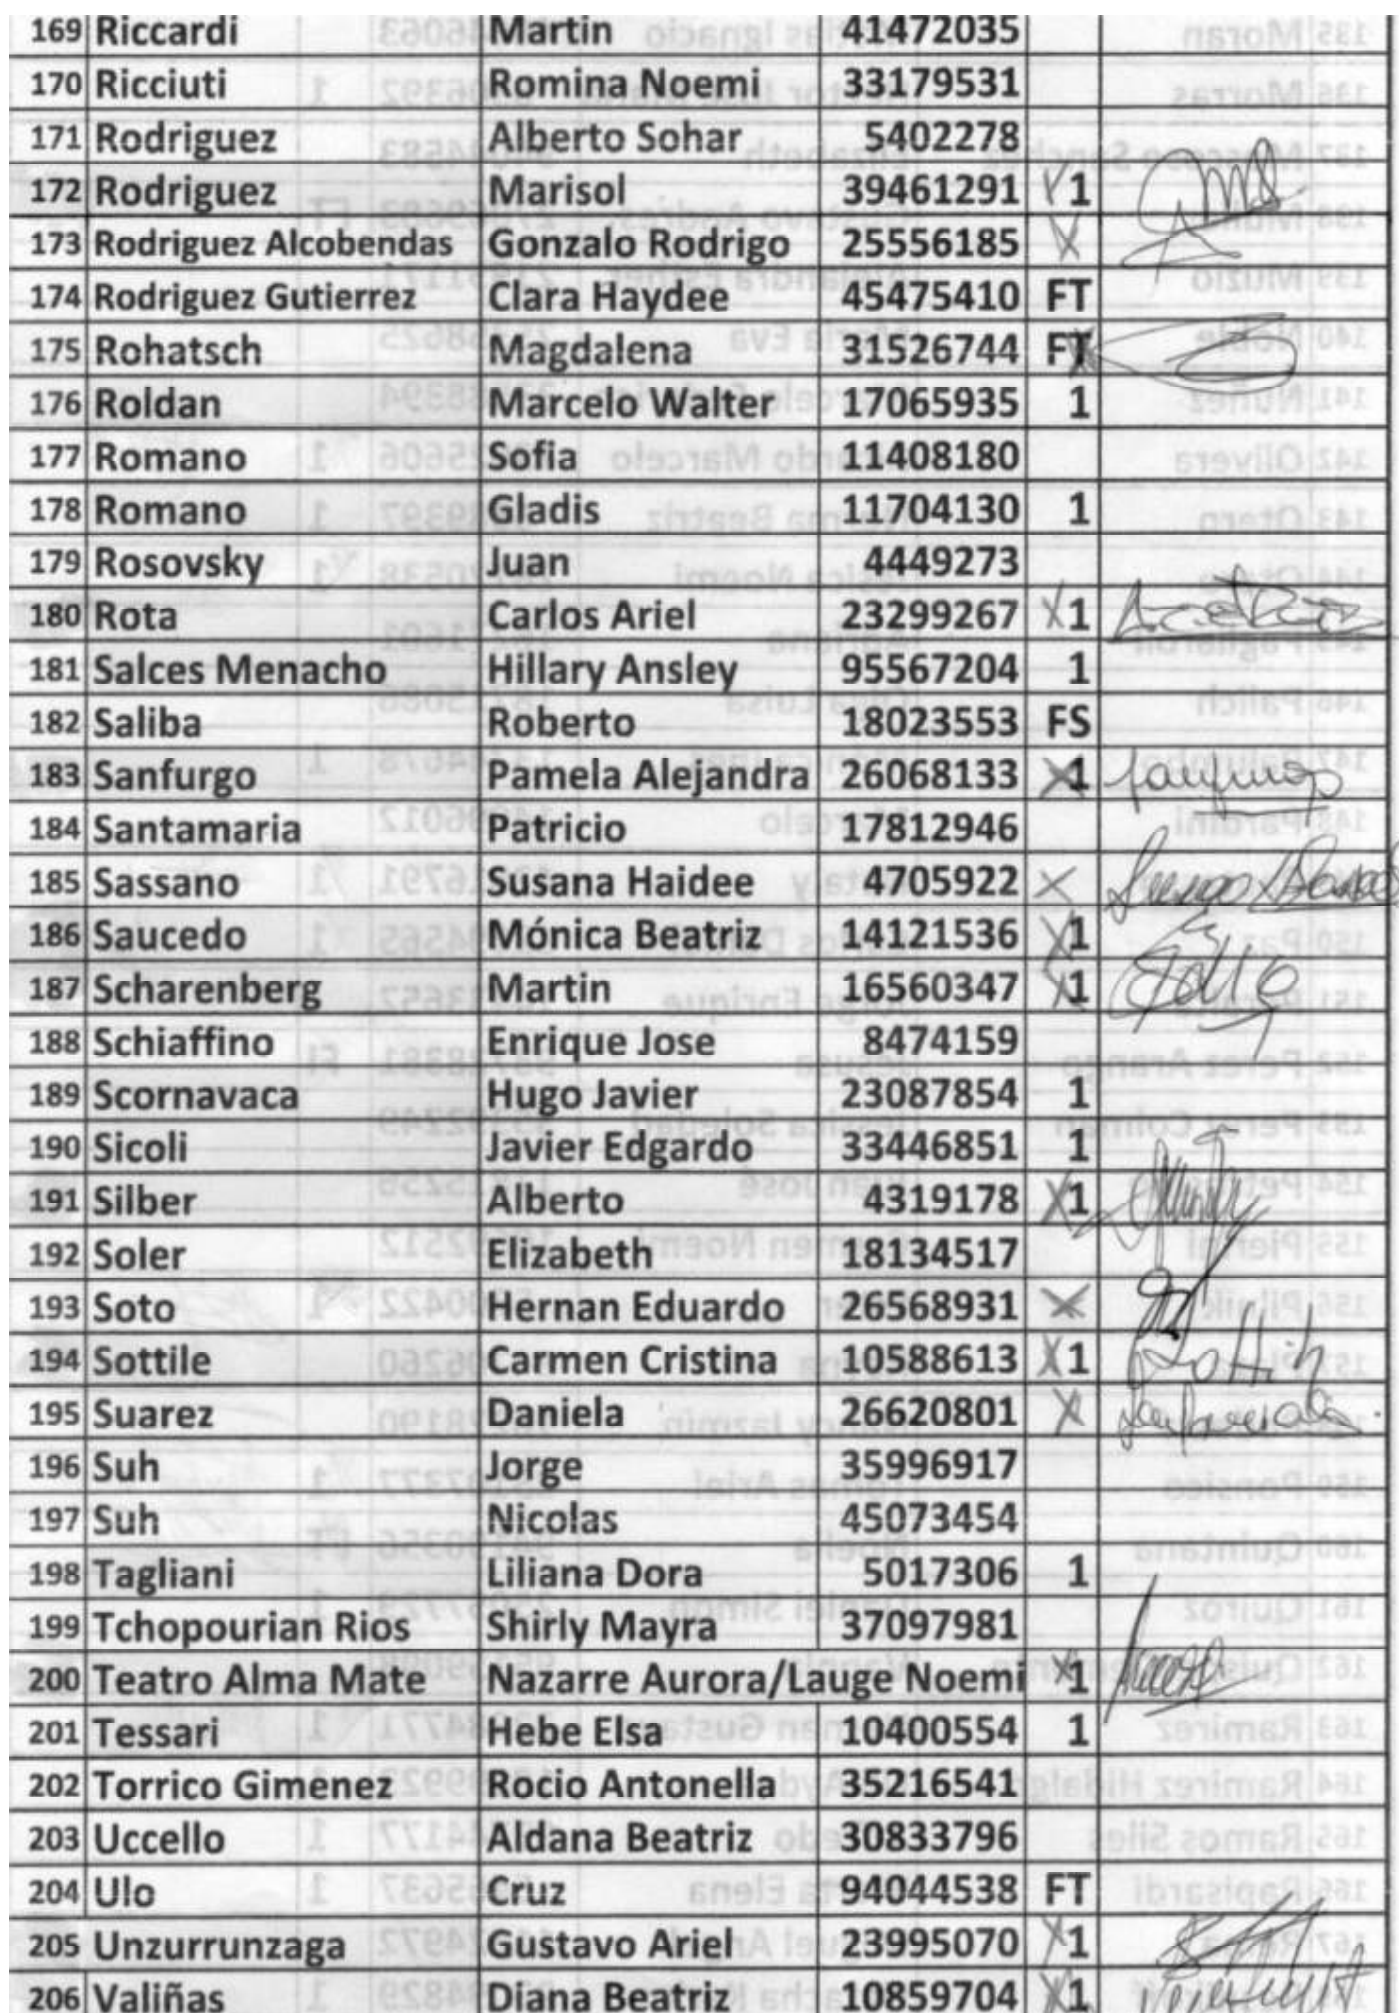 169 Riccardi Martin 41472035
170 Ricciuti Romina Noemi 33179531
171 Rodriguez Alberto Sohar 5402278
172 Rodriguez Marisol 39461291 X 1
173 Rodriguez Alcobendas Gonzalo Rodrigo 25556185 X
174 Rodriguez Gutierrez Clara Haydee 45475410 FT
175 Rohatsch Magdalena 31526744 FT
176 Roldan Marcelo Walter 17065935 1
177 Romano Sofia 11408180
178 Romano Gladis 11704130 1
179 Rosovsky Juan 4449273
180 Rota Carlos Ariel 23299267 X 1
181 Salces Menacho Hillary Ansley 95567204 1
182 Saliba Roberto 18023553 FS
183 Sanfurgo Pamela Alejandra 26068133 X 1
184 Santamaria Patricio 17812946
185 Sassano Susana Haidee 4705922 X
186 Saucedo Mónica Beatriz 14121536 X 1
187 Scharenberg Martin 16560347 X 1
188 Schiaffino Enrique Jose 8474159
189 Scornavaca Hugo Javier 23087854 1
190 Sicoli Javier Edgardo 33446851 1
191 Silber Alberto 4319178 X 1
192 Soler Elizabeth 18134517
193 Soto Hernan Eduardo 26568931 X
194 Sottile Carmen Cristina 10588613 X 1
195 Suarez Daniela 26620801 X
196 Suh Jorge 35996917
197 Suh Nicolas 45073454
198 Tagliani Liliana Dora 5017306 1
199 Tchopourian Rios Shirly Mayra 37097981
200 Teatro Alma Mate Nazarre Aurora/Lauge Noemi X 1
201 Tessari Hebe Elsa 10400554 1
202 Torrico Gimenez Rocio Antonella 35216541
203 Uccello Aldana Beatriz 30833796
204 Ulo Cruz 94044538 FT
205 Unzurrunzaga Gustavo Ariel 23995070 X 1
206 Valiñas Diana Beatriz 10859704 X 1